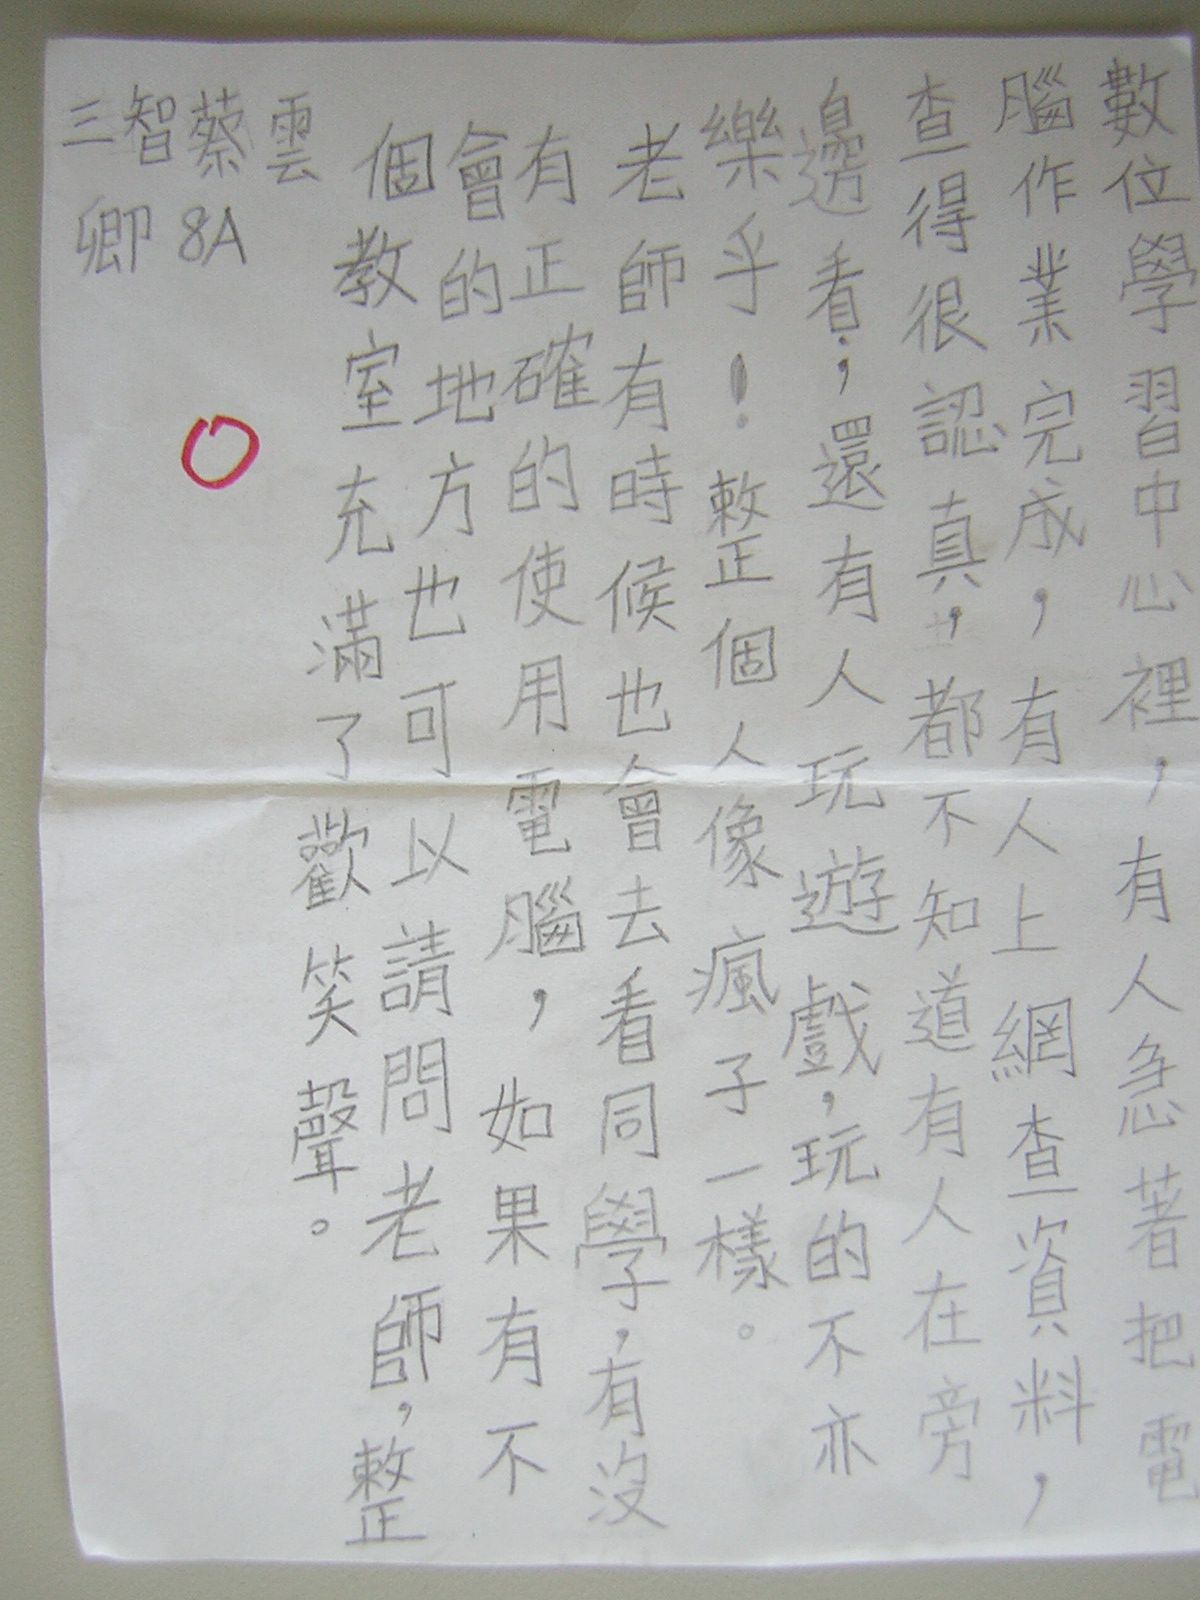 數位學習中心裡，有人急著把電
腦作業完成，有人上網查資料，
查得很認真，都不知道有人在旁
邊看；還有人玩遊戲，玩的不亦
樂乎！整個人像瘋子一樣。
老師有時候也會去看同學，有沒
有正確的使用電腦，如果有不
會的地方也可以請問老師，整
個教室充滿了歡笑聲。
雲
蔡8A
智卿
三